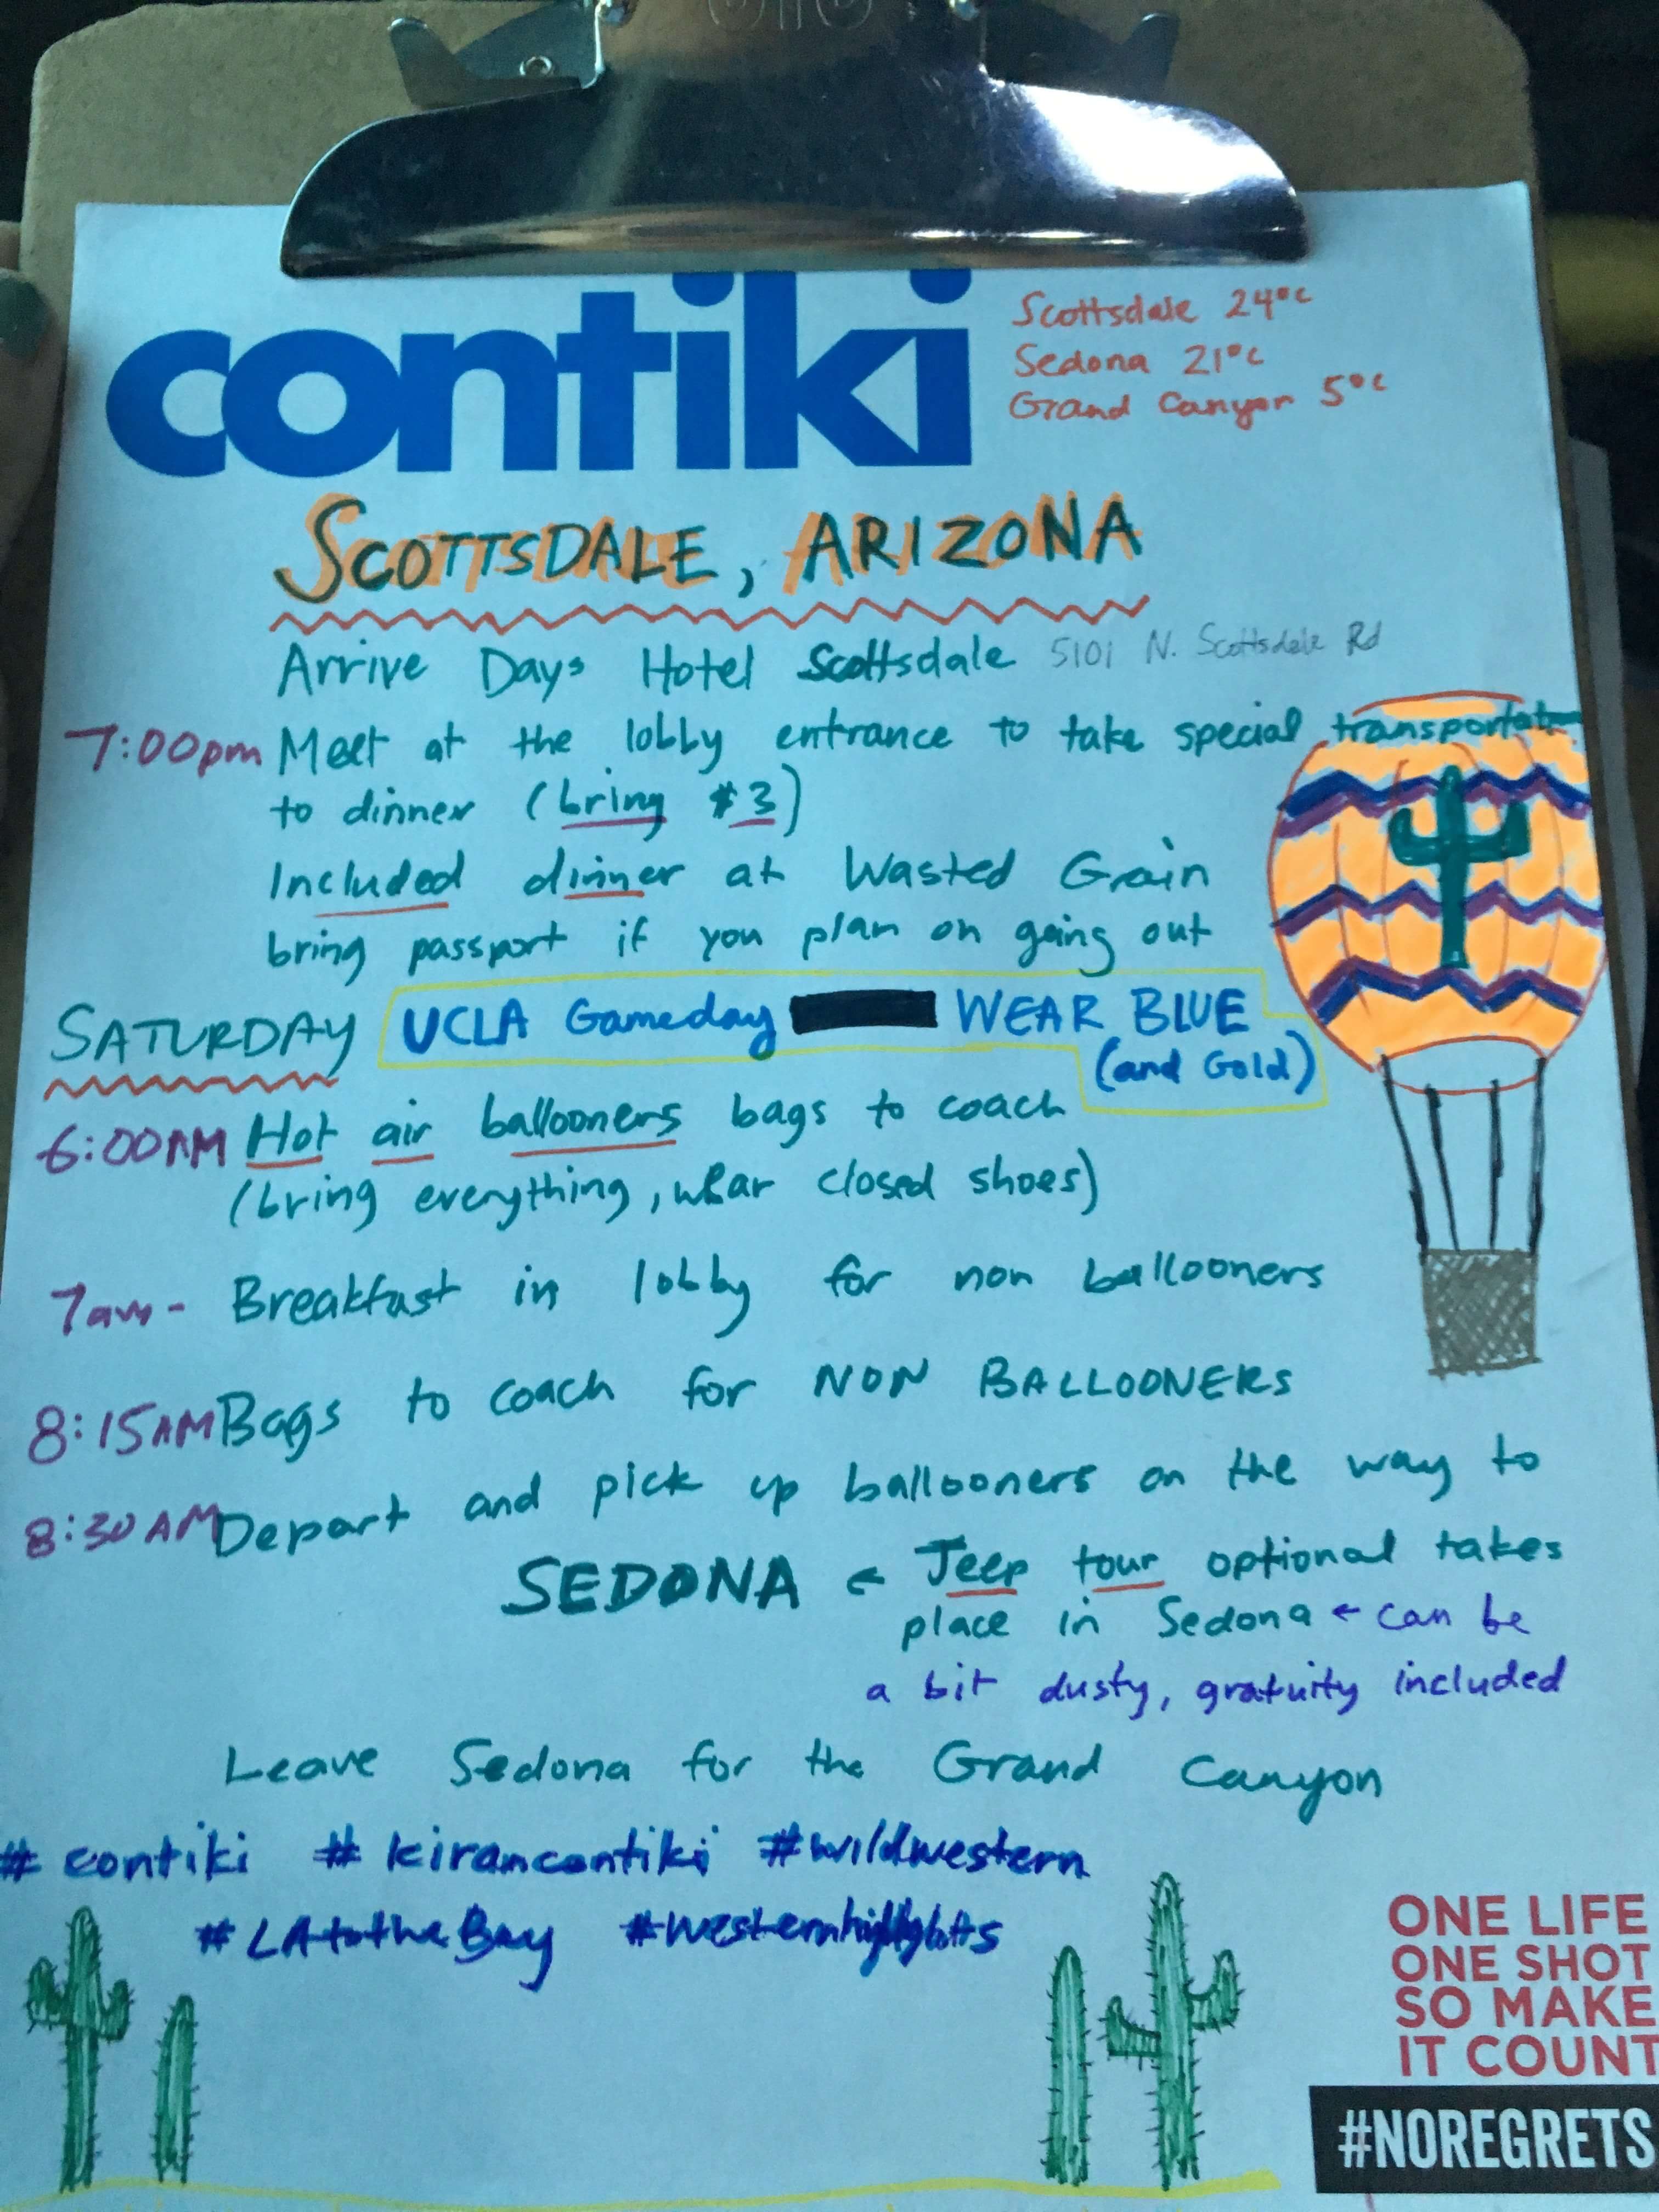 contiki
Scottsdale 24°c
Sedona 21°c
Grand Canyon 5°c
SCOTTSDALE, ARIZONA
Arrive Days Hotel Scottsdale 5101 N. Scottsdale Rd
7:00pm Meet at the lobby entrance to take special
to dinner (bring $3)
Included dinner at Wasted Grain
bring passport if you plan on going out
SATURDAY UCLA Gameday WEAR BLUE
(and Gold)
6:00AM Hot air ballooners bags to coach
(bring everything, wear closed shoes)
7am - Breakfast in lobby for non ballooners
8:15AM Bags to coach for NON BALLOONERS
8:30AM Depart and pick up ballooners on the way to
SEDONA ← Jeep tour optional takes
place in Sedona ← can be
a bit dusty, gratuity included
Leave Sedona for the Grand Canyon
# contiki # kirancontiki #wildwestern
#LAtotheBay #Westernhighlights
ONE LIFE
ONE SHOT
SO MAKE
IT COUNT
#NOREGRETS